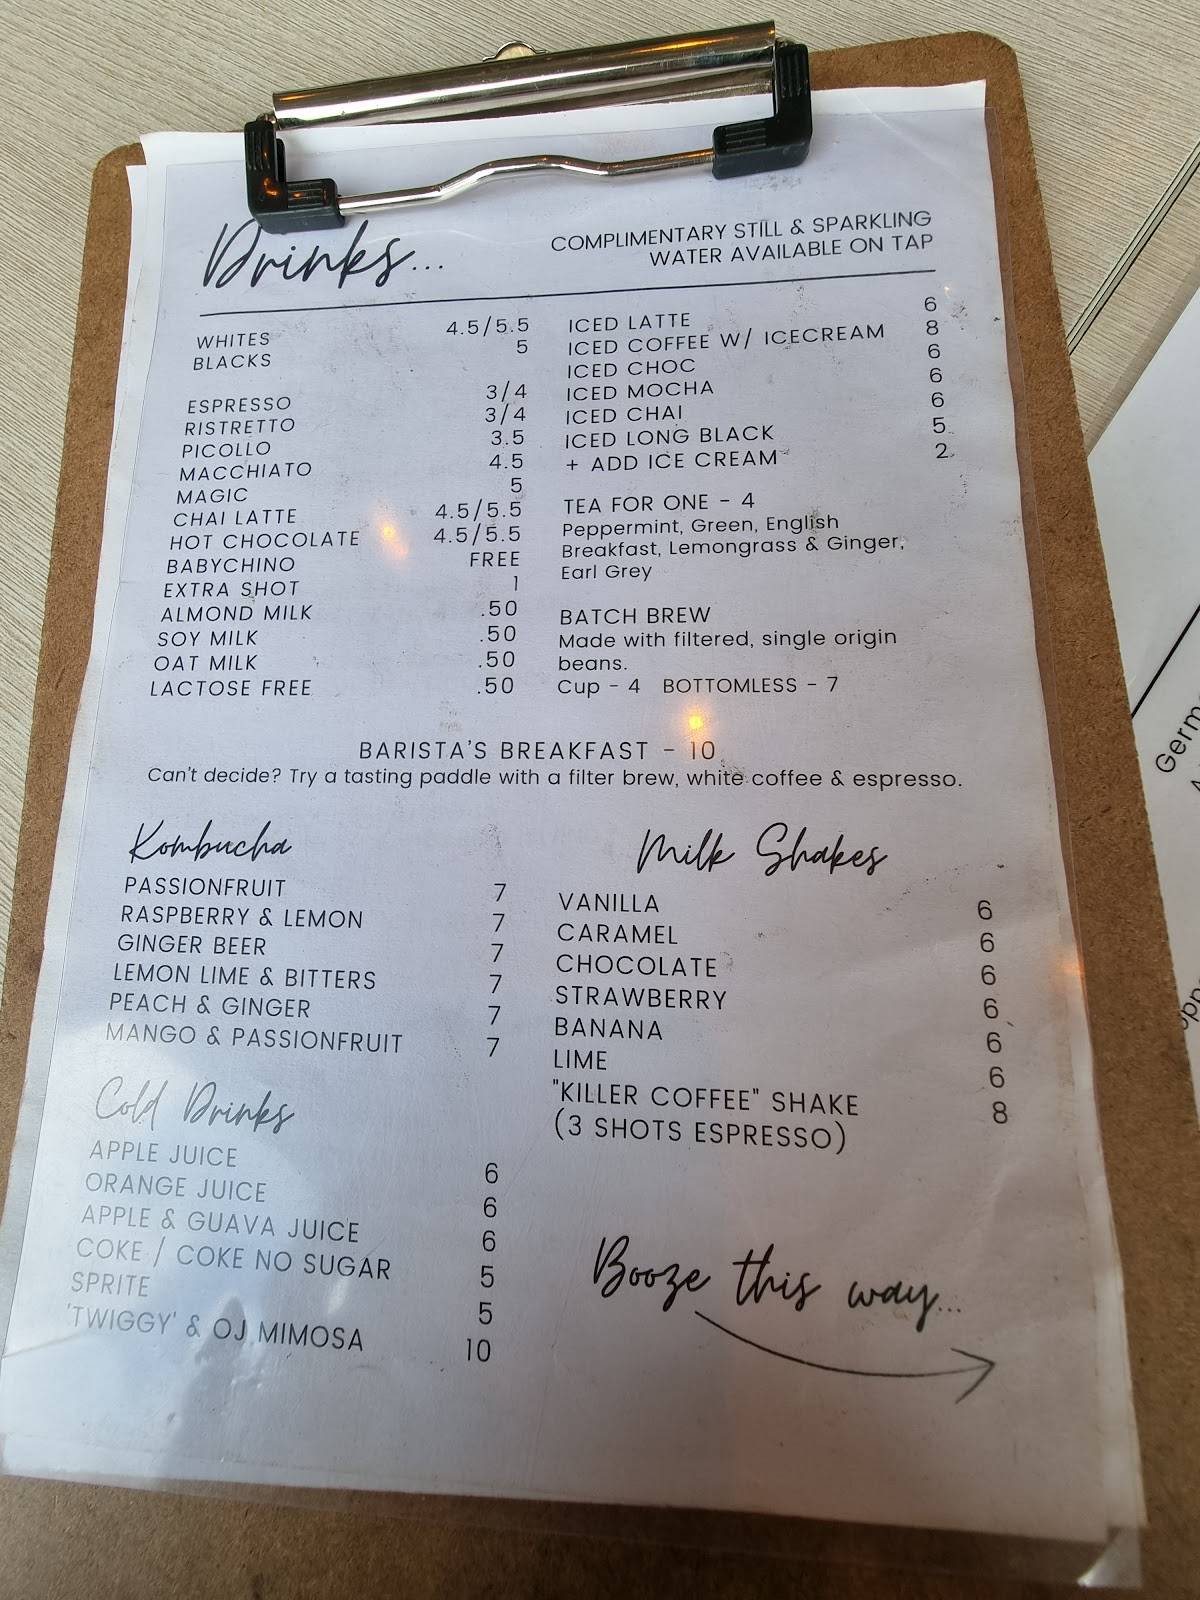 Drinks...
COMPLIMENTARY STILL & SPARKLING
WATER AVAILABLE ON TAP
WHITES 4.5/5.5
BLACKS 5
ESPRESSO 3/4
RISTRETTO 3/4
PICOLLO 3.5
MACCHIATO 4.5
MAGIC 5
CHAI LATTE 4.5/5.5
HOT CHOCOLATE 4.5/5.5
BABYCHINO FREE
EXTRA SHOT 1
ALMOND MILK .50
SOY MILK .50
OAT MILK .50
LACTOSE FREE .50
ICED LATTE 6
ICED COFFEE W/ ICECREAM 8
ICED CHOC 6
ICED MOCHA 6
ICED CHAI 6
ICED LONG BLACK 5
+ ADD ICE CREAM 2
TEA FOR ONE - 4
Peppermint, Green, English
Breakfast, Lemongrass & Ginger,
Earl Grey
BATCH BREW
Made with filtered, single origin
beans.
Cup - 4 BOTTOMLESS - 7
BARISTA'S BREAKFAST - 10
Can't decide? Try a tasting paddle with a filter brew, white coffee & espresso.
Kombucha
PASSIONFRUIT 7
RASPBERRY & LEMON 7
GINGER BEER 7
LEMON LIME & BITTERS 7
PEACH & GINGER 7
MANGO & PASSIONFRUIT 7
Cold Drinks
APPLE JUICE 6
ORANGE JUICE 6
APPLE & GUAVA JUICE 6
COKE / COKE NO SUGAR 5
SPRITE 5
'TWIGGY' & OJ MIMOSA 10
Milk Shakes
VANILLA 6
CARAMEL 6
CHOCOLATE 6
STRAWBERRY 6
BANANA 6
LIME 6
"KILLER COFFEE" SHAKE 8
(3 SHOTS ESPRESSO)
Booze this way...
Germ